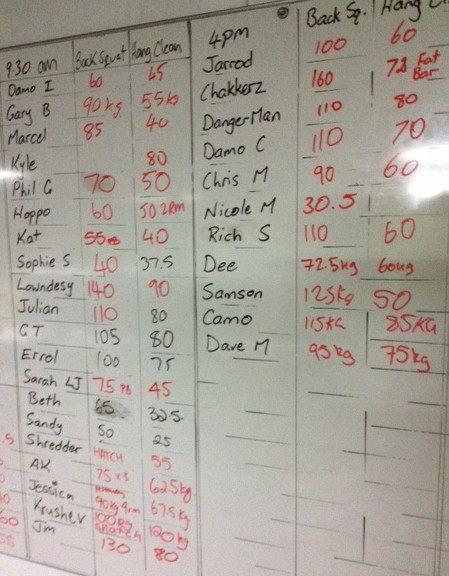 9:30 am Back Squat Hang Clean
Damo I 60 45
Gary B 90 kg 55kg
Marcel 85 40
Kyle 80
Phil G 70 50
Hoppo 60 50 2RM
Kat 55 40
Sophie S 40 37.5
Lowndesy 140 90
Julian 110 80
GT 105 80
Errol 100 75
Sarah LJ 75 PB 45
Beth 65 32.5
Sandy 50 25
Shredder HATCH 55
AK 75 x3 62.5kg
Jessica 90kg 67.5kg
Krusher 100kg 120kg
Jm 130 80
4pm Back Sq. Hang
Jarrod 100 60
Chakkerz 160 73 Fat Bar
DangerMan 110 80
Damo C 110 70
Chris M 90 60
Nicole M 30.5
Rich S 110 60
Dee 72.5kg 60kg
Samson 125kg 50
Camo 115KG 85KG
Dave M 95kg 75kg